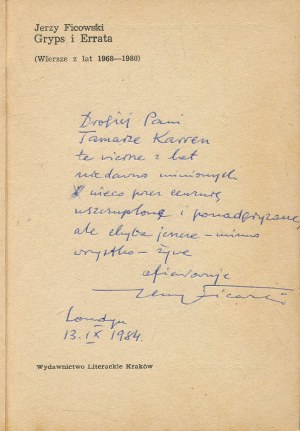 Jerzy Ficowski
Gryps i Errata
(Wiersze z lat 1968—1980)
Drogiej Pani
Tamarze Karren
te wiersze z lat
niedawno minionych
nieco przez cenzurę
uszczuplone i ponadgryzane,
ale chyba jeszcze – mimo
wszystko – żywe
ofiarowuje
Jerzy Ficowski
Londyn
13.IX 1984.
Wydawnictwo Literackie Kraków